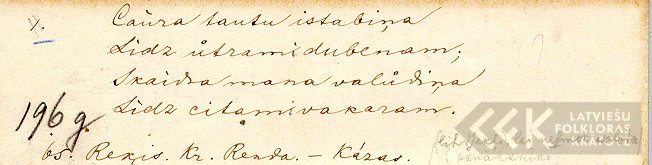 1.
Caura tautu istabiņa
Lidz ůtrami dubenam;
Skaidra mana valůdiņa
Lidz citami vakaram.
196 g.
65. Rezis. Kr. Renda. – Kāzas.
LATVIEŠU
FOLKLORAS
KRĀTUVE